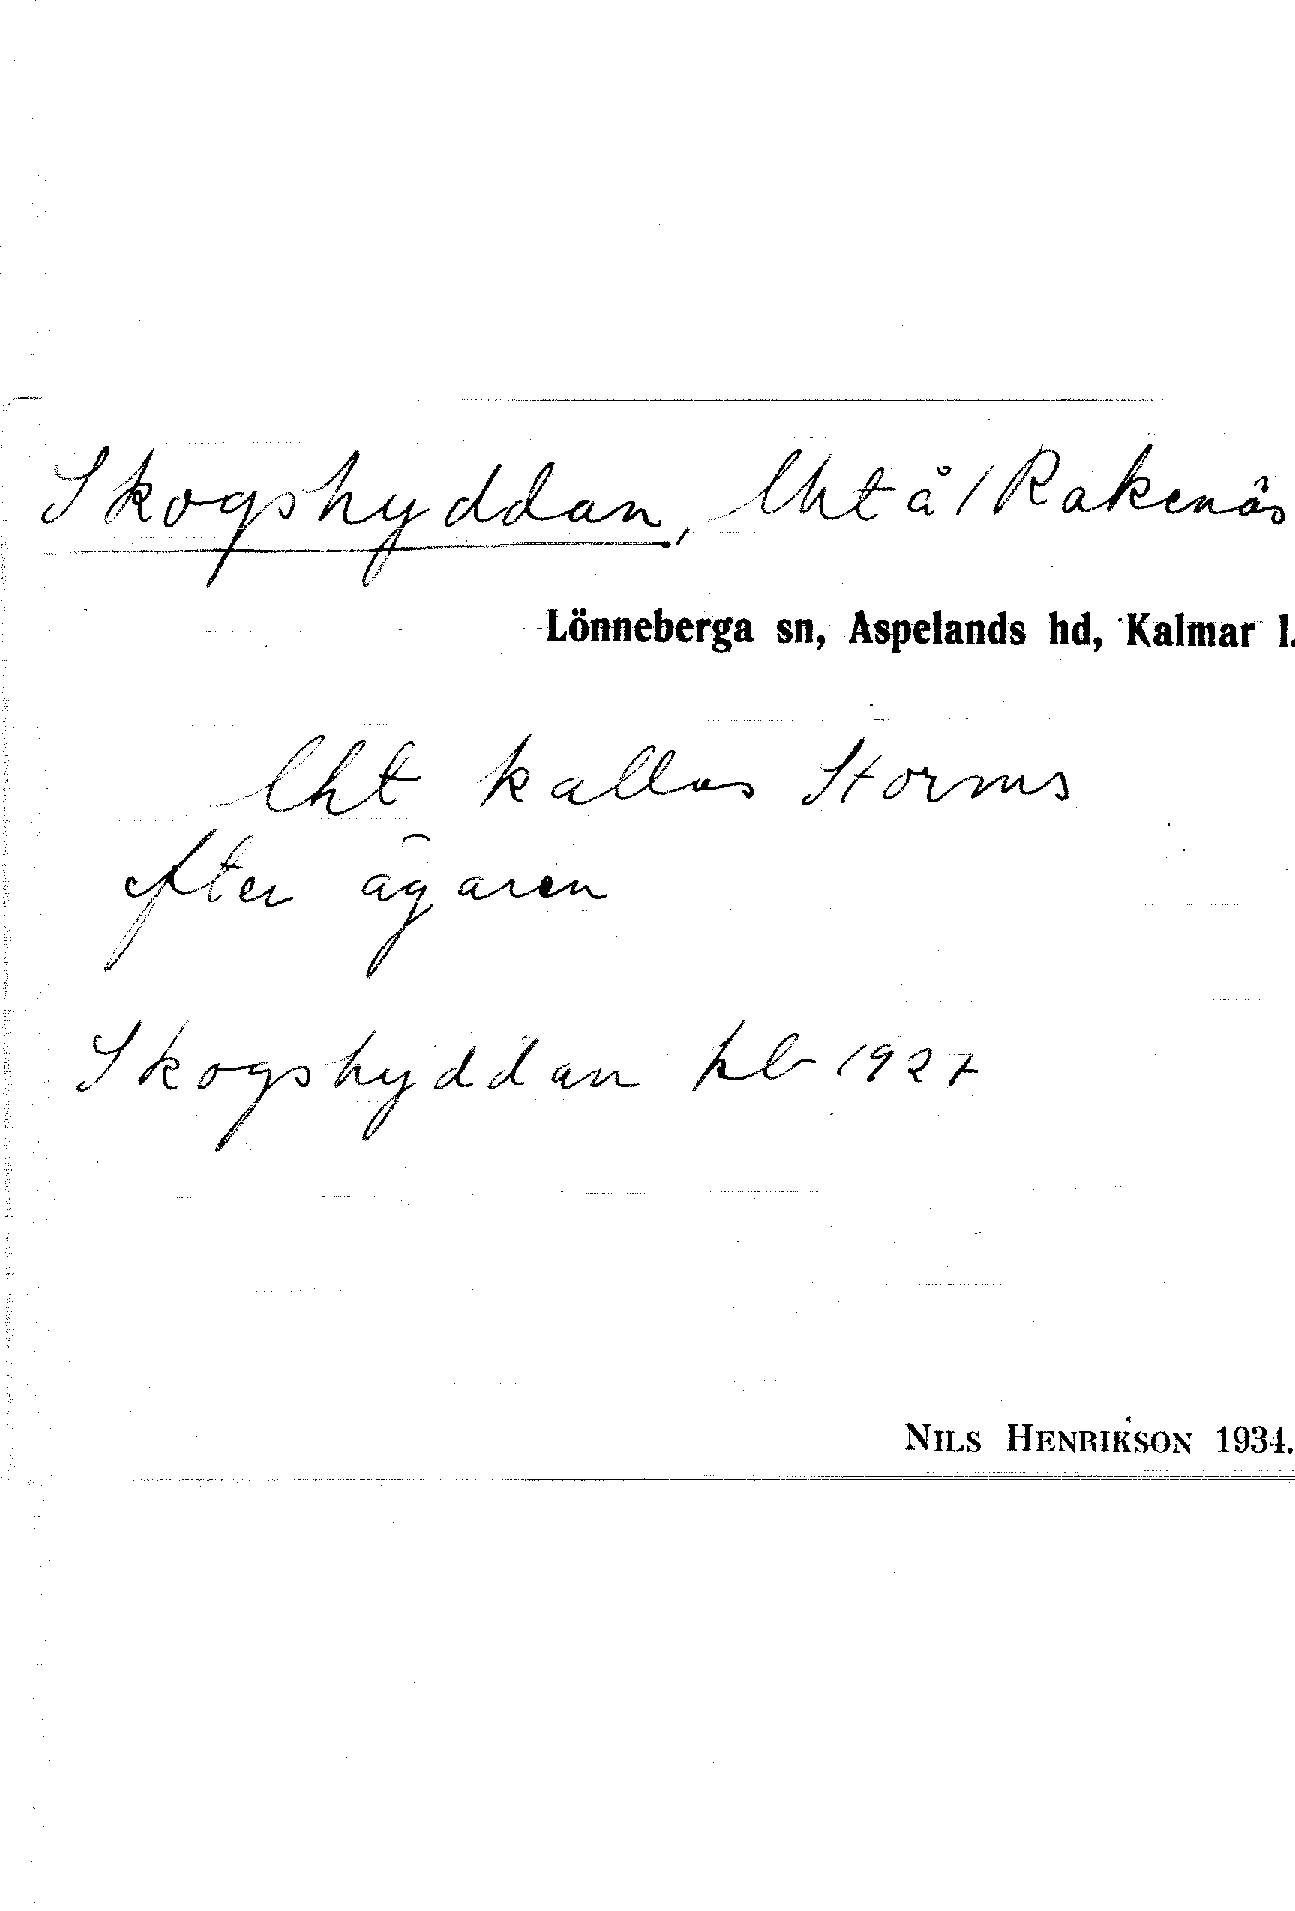 Skogshyddan, lht å / Rakenäs
Lönneberga sn, Aspelands hd, Kalmar l.
lht kallas Storms
efter ägaren
Skogshyddan hb 1927
NILS HENRIKSON 1934.